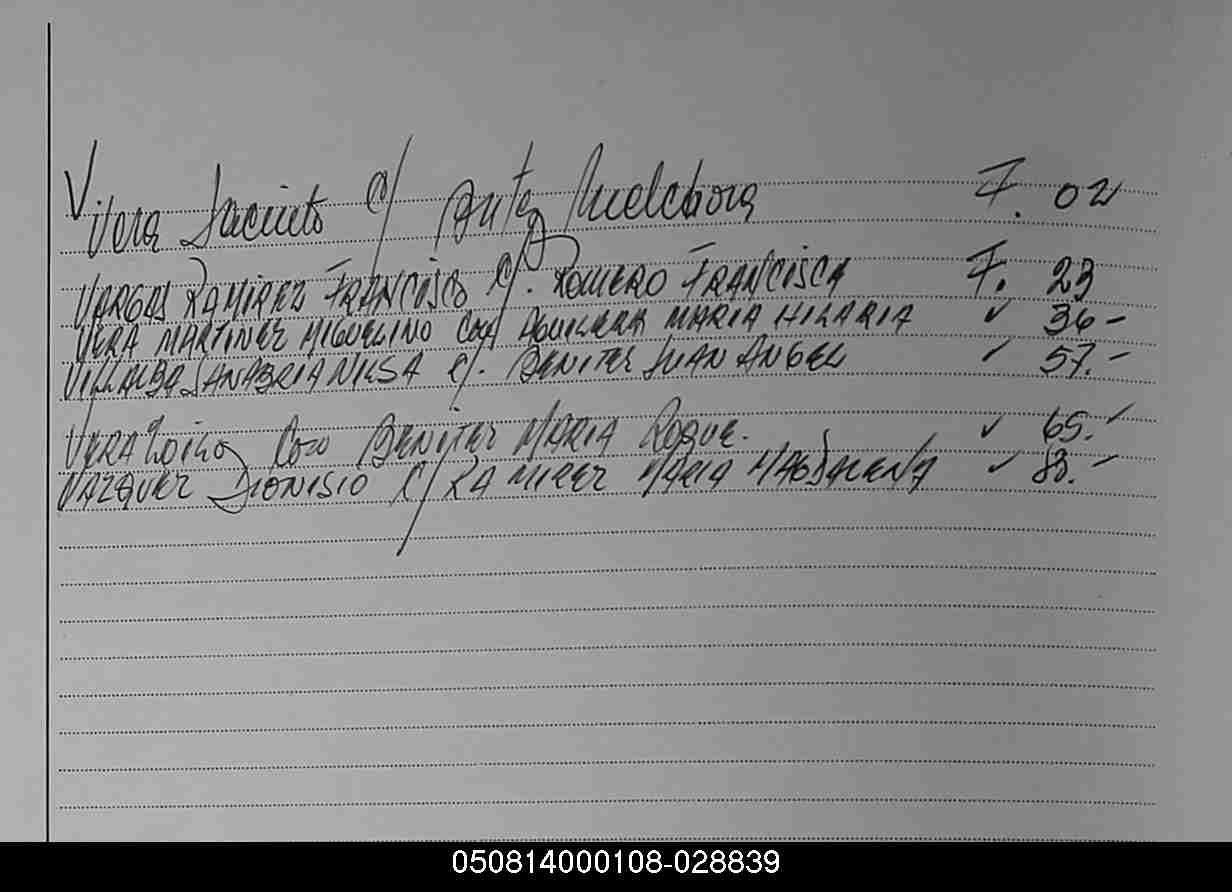 Vera Jacinto c/ Melchora F. 02
VARGAS RAMIREZ FRANCISCO c/. ROMERO FRANCISCA F. 23
VERA MARTINEZ MIGUELINO CON AGUILERA MARIA HILARIA ✓ 36-
VILLALBA SANABRIA NILSA c/. BENITEZ JUAN ANGEL ✓ 57.-
VERA CON BENITEZ MARIA ROQUE. ✓ 65.-
VAZQUEZ DIONISIO c/ RAMIREZ MARIA MAGDALENA ✓ 83.-
050814000108-028839